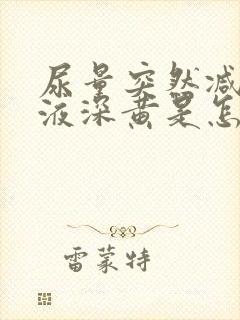 尿量突然减
液深黄是怎
雷蒙特